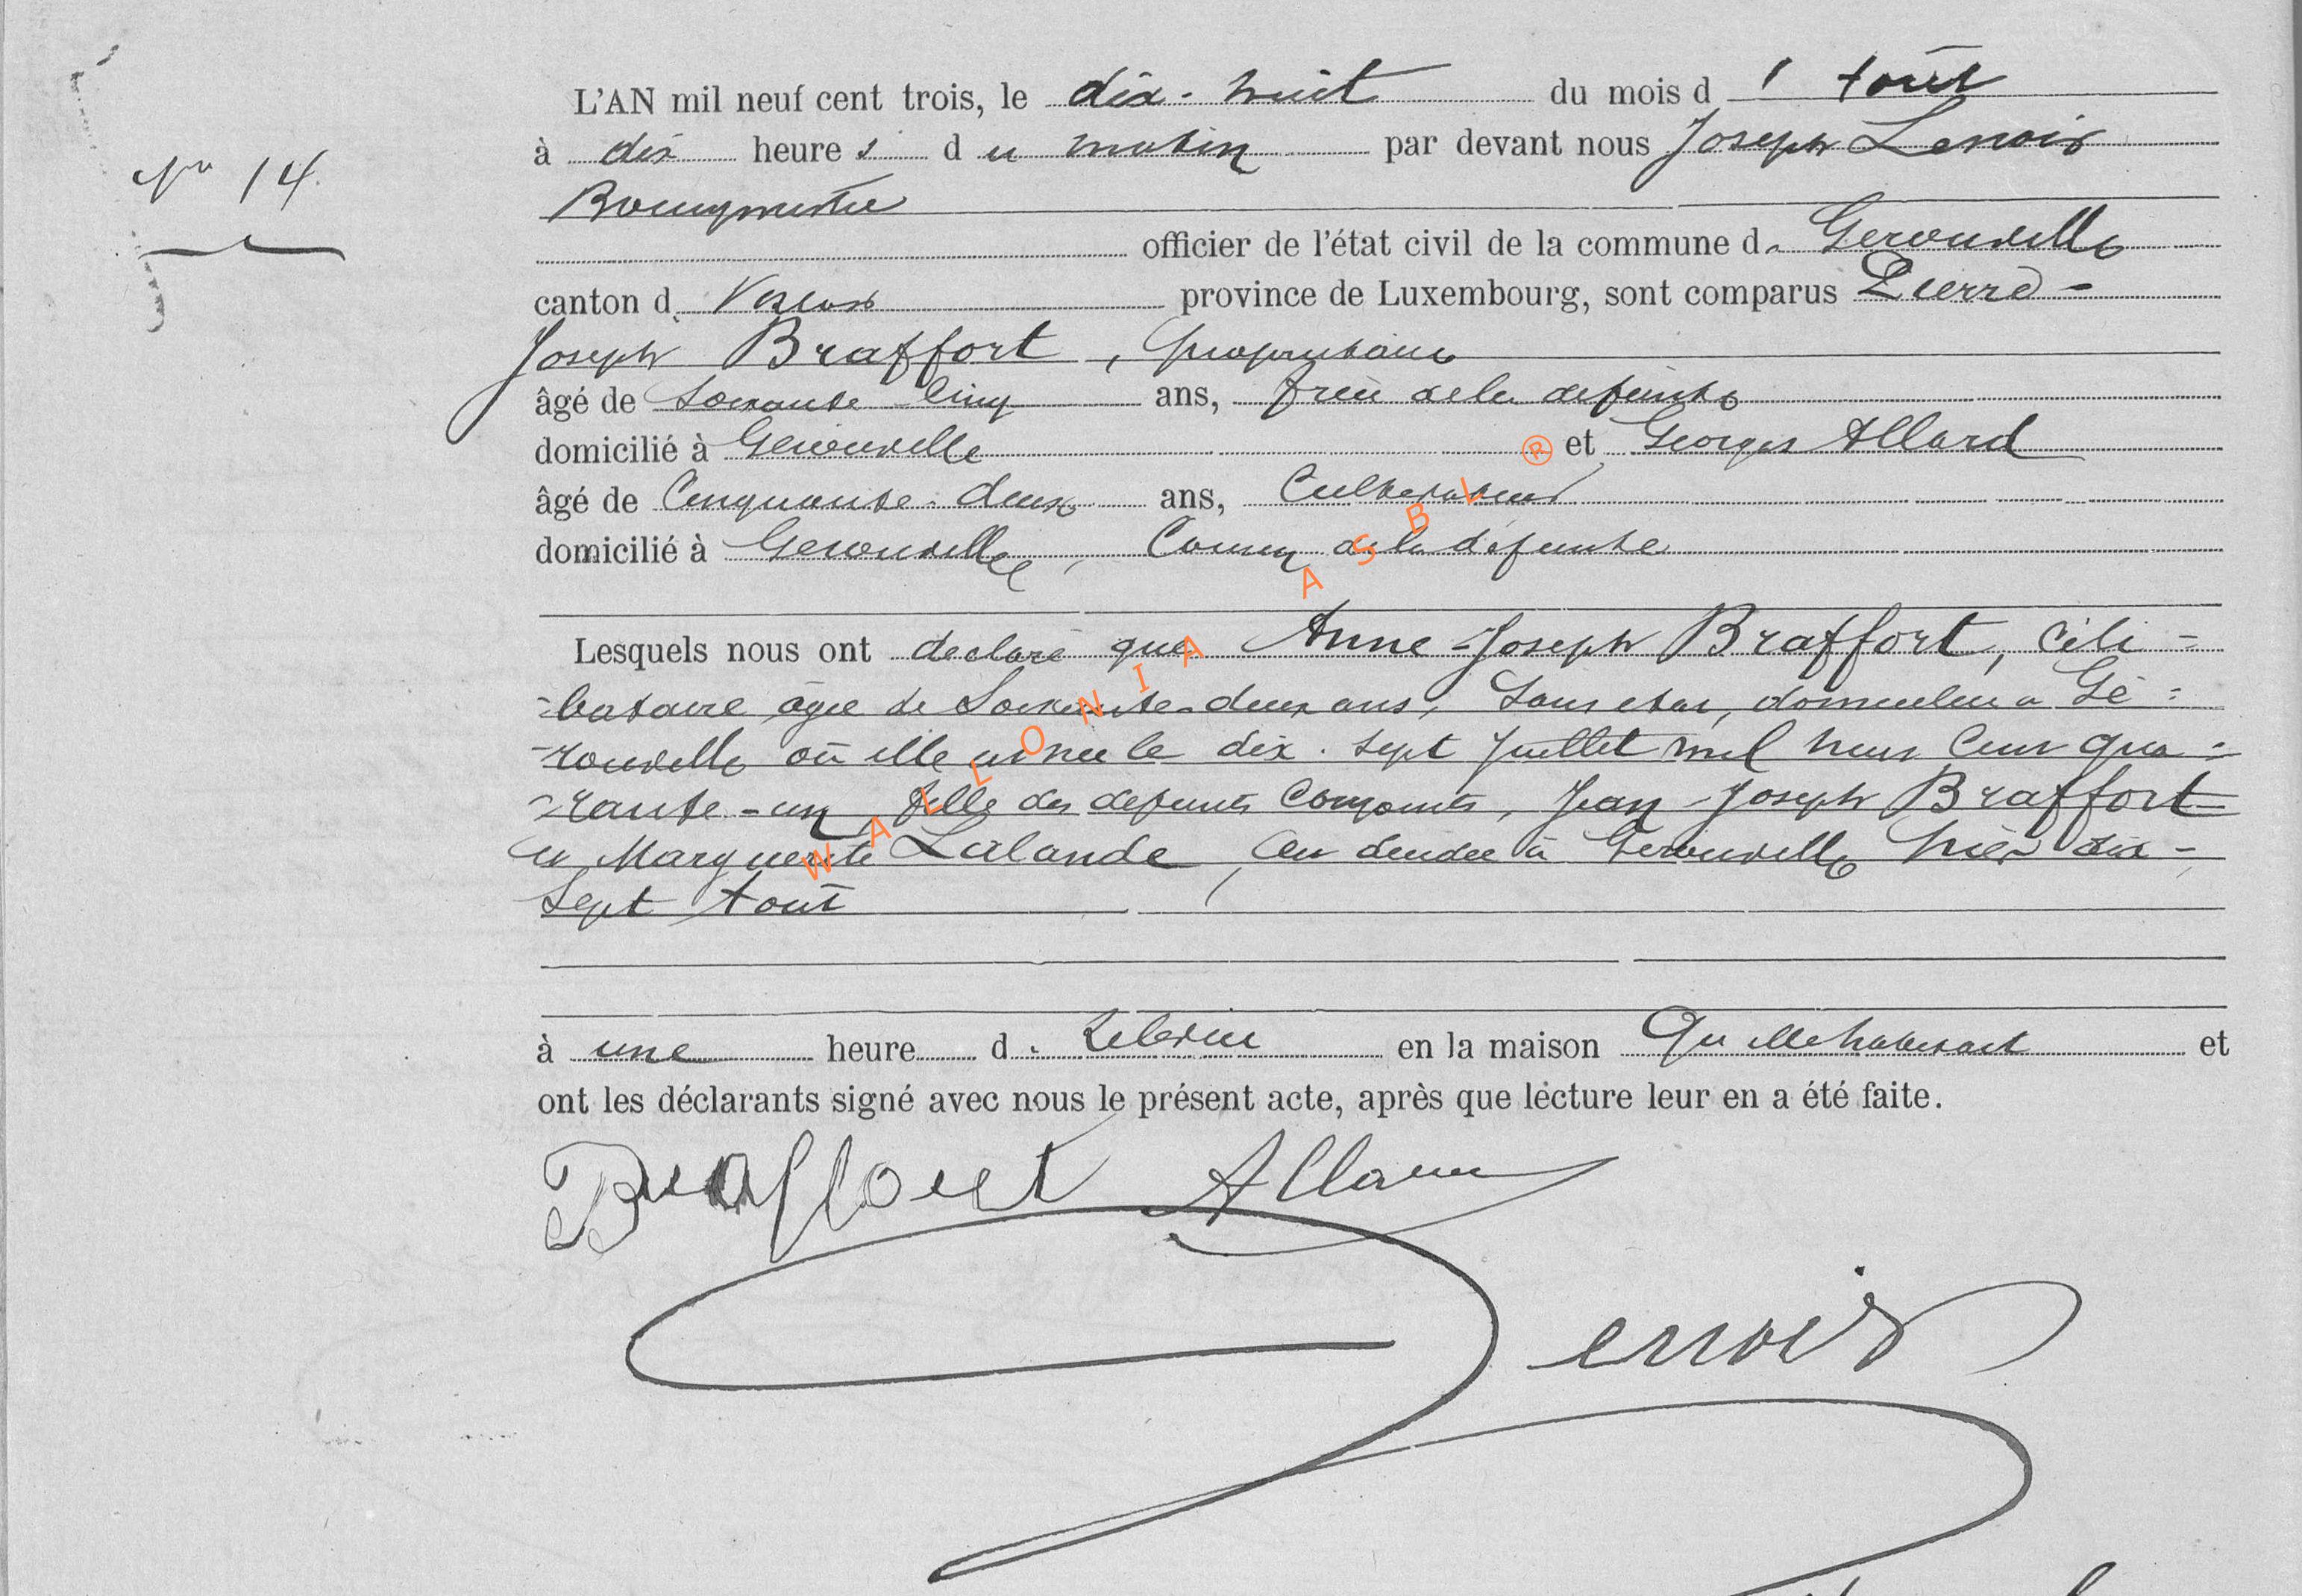 L'AN mil neuf cent trois, le dix-huit du mois d'Août
à dix heures du matin par devant nous Joseph Lenoir
No 14
Bourgmestre
officier de l'état civil de la commune de Gerouville
canton de Virton province de Luxembourg, sont comparus Pierre-
Joseph Braffort, propriétaire
âgé de Soixante cinq ans, frère de la defunte
domicilié à Gerouville et Georges Allard
âgé de Cinquante-deux ans, Cultivateur
domicilié à Gerouville, Cousin de la défunte
Lesquels nous ont declaré que Anne-Joseph Braffort, céli=
=bataire agée de Soixante-deux ans, Sans etat, domiciliée a Gé=
=rouville où elle est née le dix-sept Juillet mil huit Cent qua=
=rante-un, fille des defunts Conjoints, Jean-Joseph Braffort
et Marguerite Lalande, est décédée à Gerouville hier dix-
Sept Août
à une heure de relevée en la maison Qu'elle habitait et
ont les déclarants signé avec nous le présent acte, après que lecture leur en a été faite.
Braffort Allard
Lenoir
WALLONIA ASBL ®